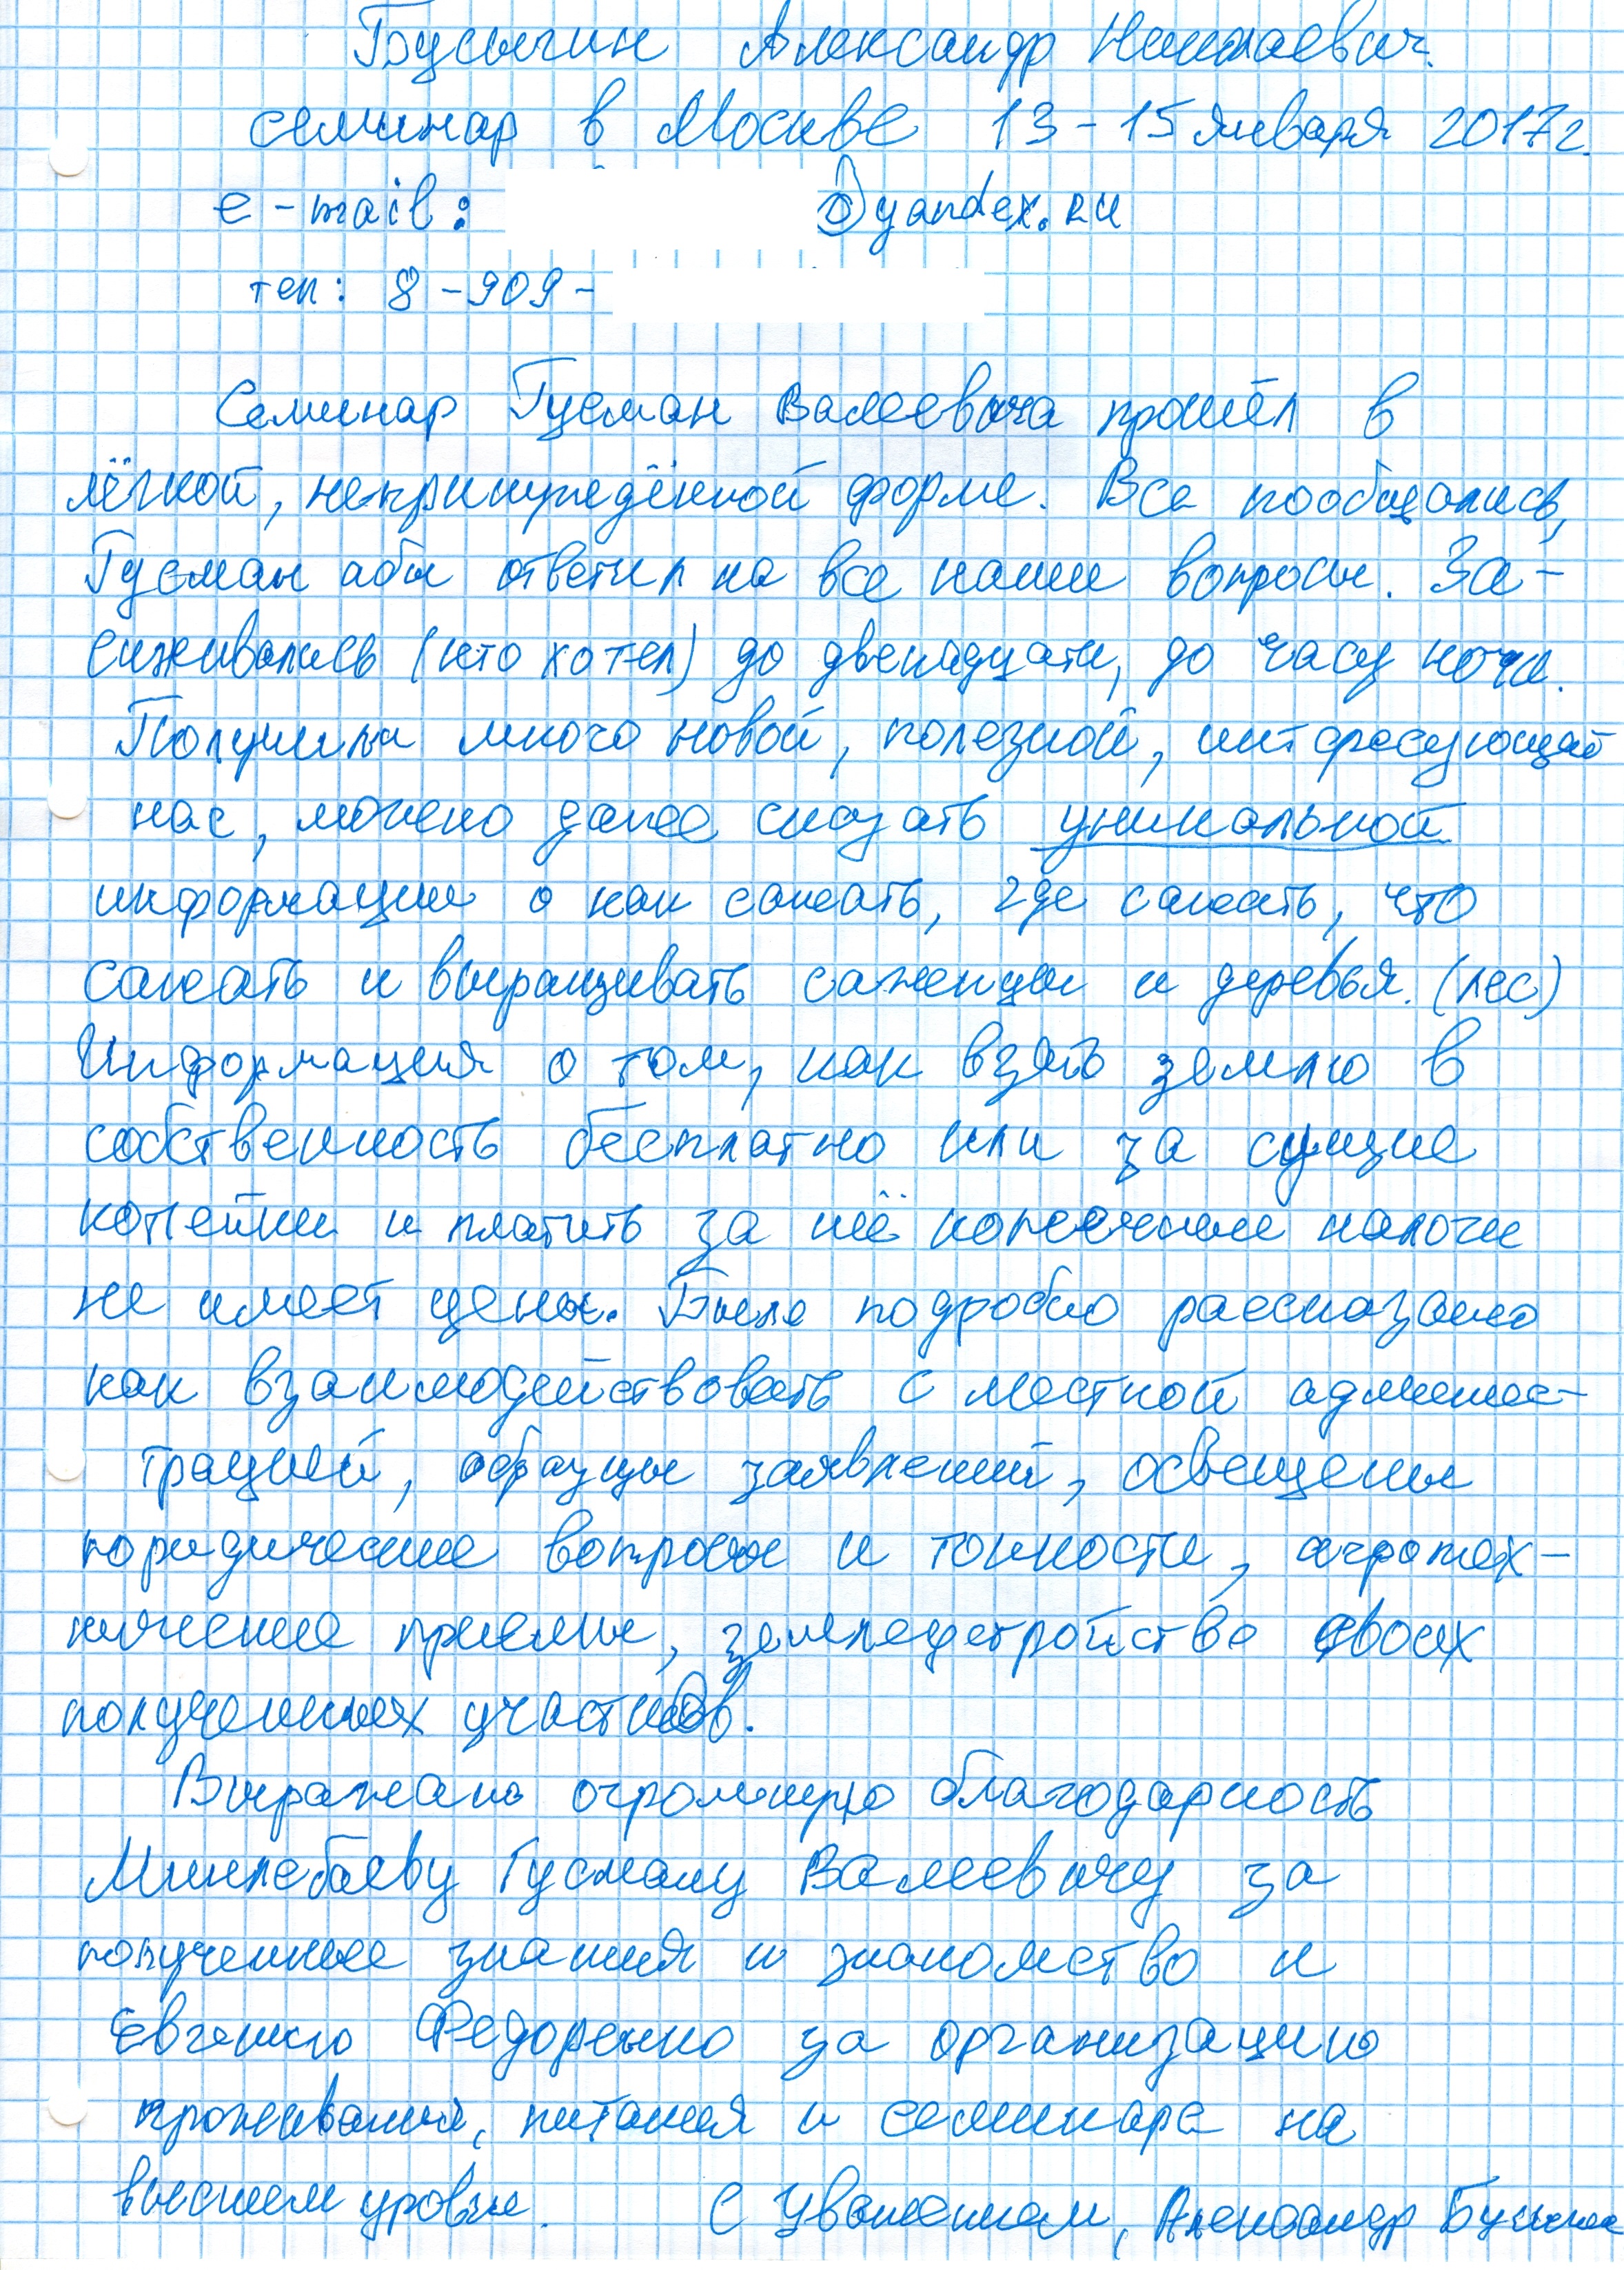 Бусыгин Александр Николаевич.
семинар в Москве 13-15 января 2017г.
e-mail: @yandex.ru
тел: 8-909-
Семинар Гусман Валеевича прошёл в
лёгкой, непринуждённой форме. Все пообщались,
Гусман абы ответил на все наши вопросы. За-
сиживались (кто хотел) до двенадцати, до часу ночи.
Получили много новой, полезной, интересующей
нас, можно даже сказать уникальной
информации о как сажать, где сажать, что
сажать и выращивать саженцы и деревья. (лес)
Информация о том, как взять землю в
собственность бесплатно или за сущие
копейки и платить за неё копеечные налоги
не имеет цены. Было подробно рассказано
как взаимодействовать с местной админис-
трацией, образцы заявлений, освещены
юридические вопросы и тонкости, агротех-
нические приемы, землеустройство своих
полученных участков.
Выражаю огромную благодарность
Минлебаеву Гусману Валеевичу за
полученные знания и знакомство и
Евгению Федоренко за организацию
проживания, питания и семинара на
высшем уровне. С Уважением, Александр Бусыгин